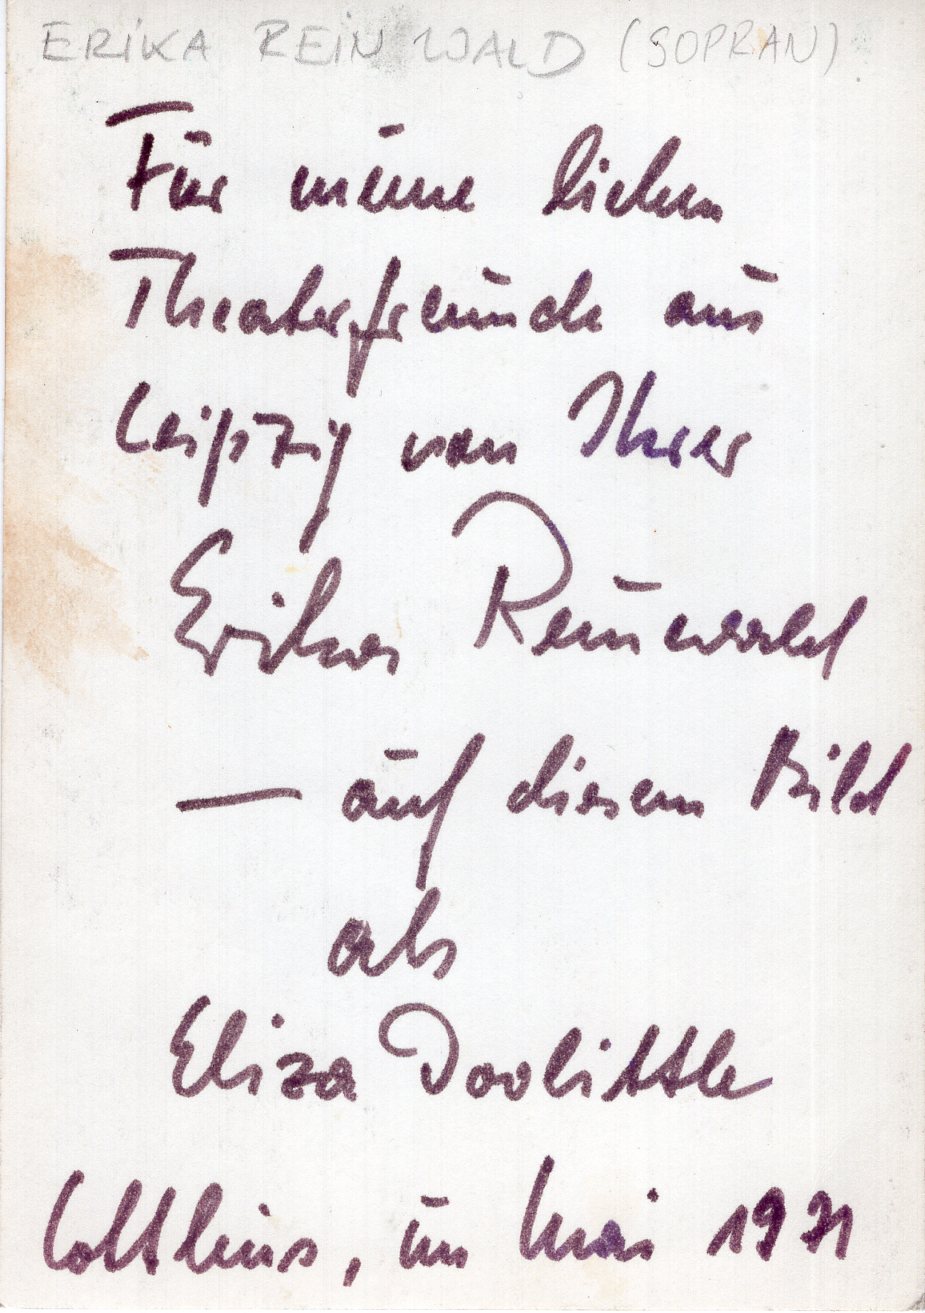 ERIKA REINWALD (SOPRAN)
Für meine lieben
Theaterfreunde aus
Leipzig von Ihrer
Erika Reinwald
— auf diesem Bild
als
Eliza Doolittle
Cottbus, im Mai 1971